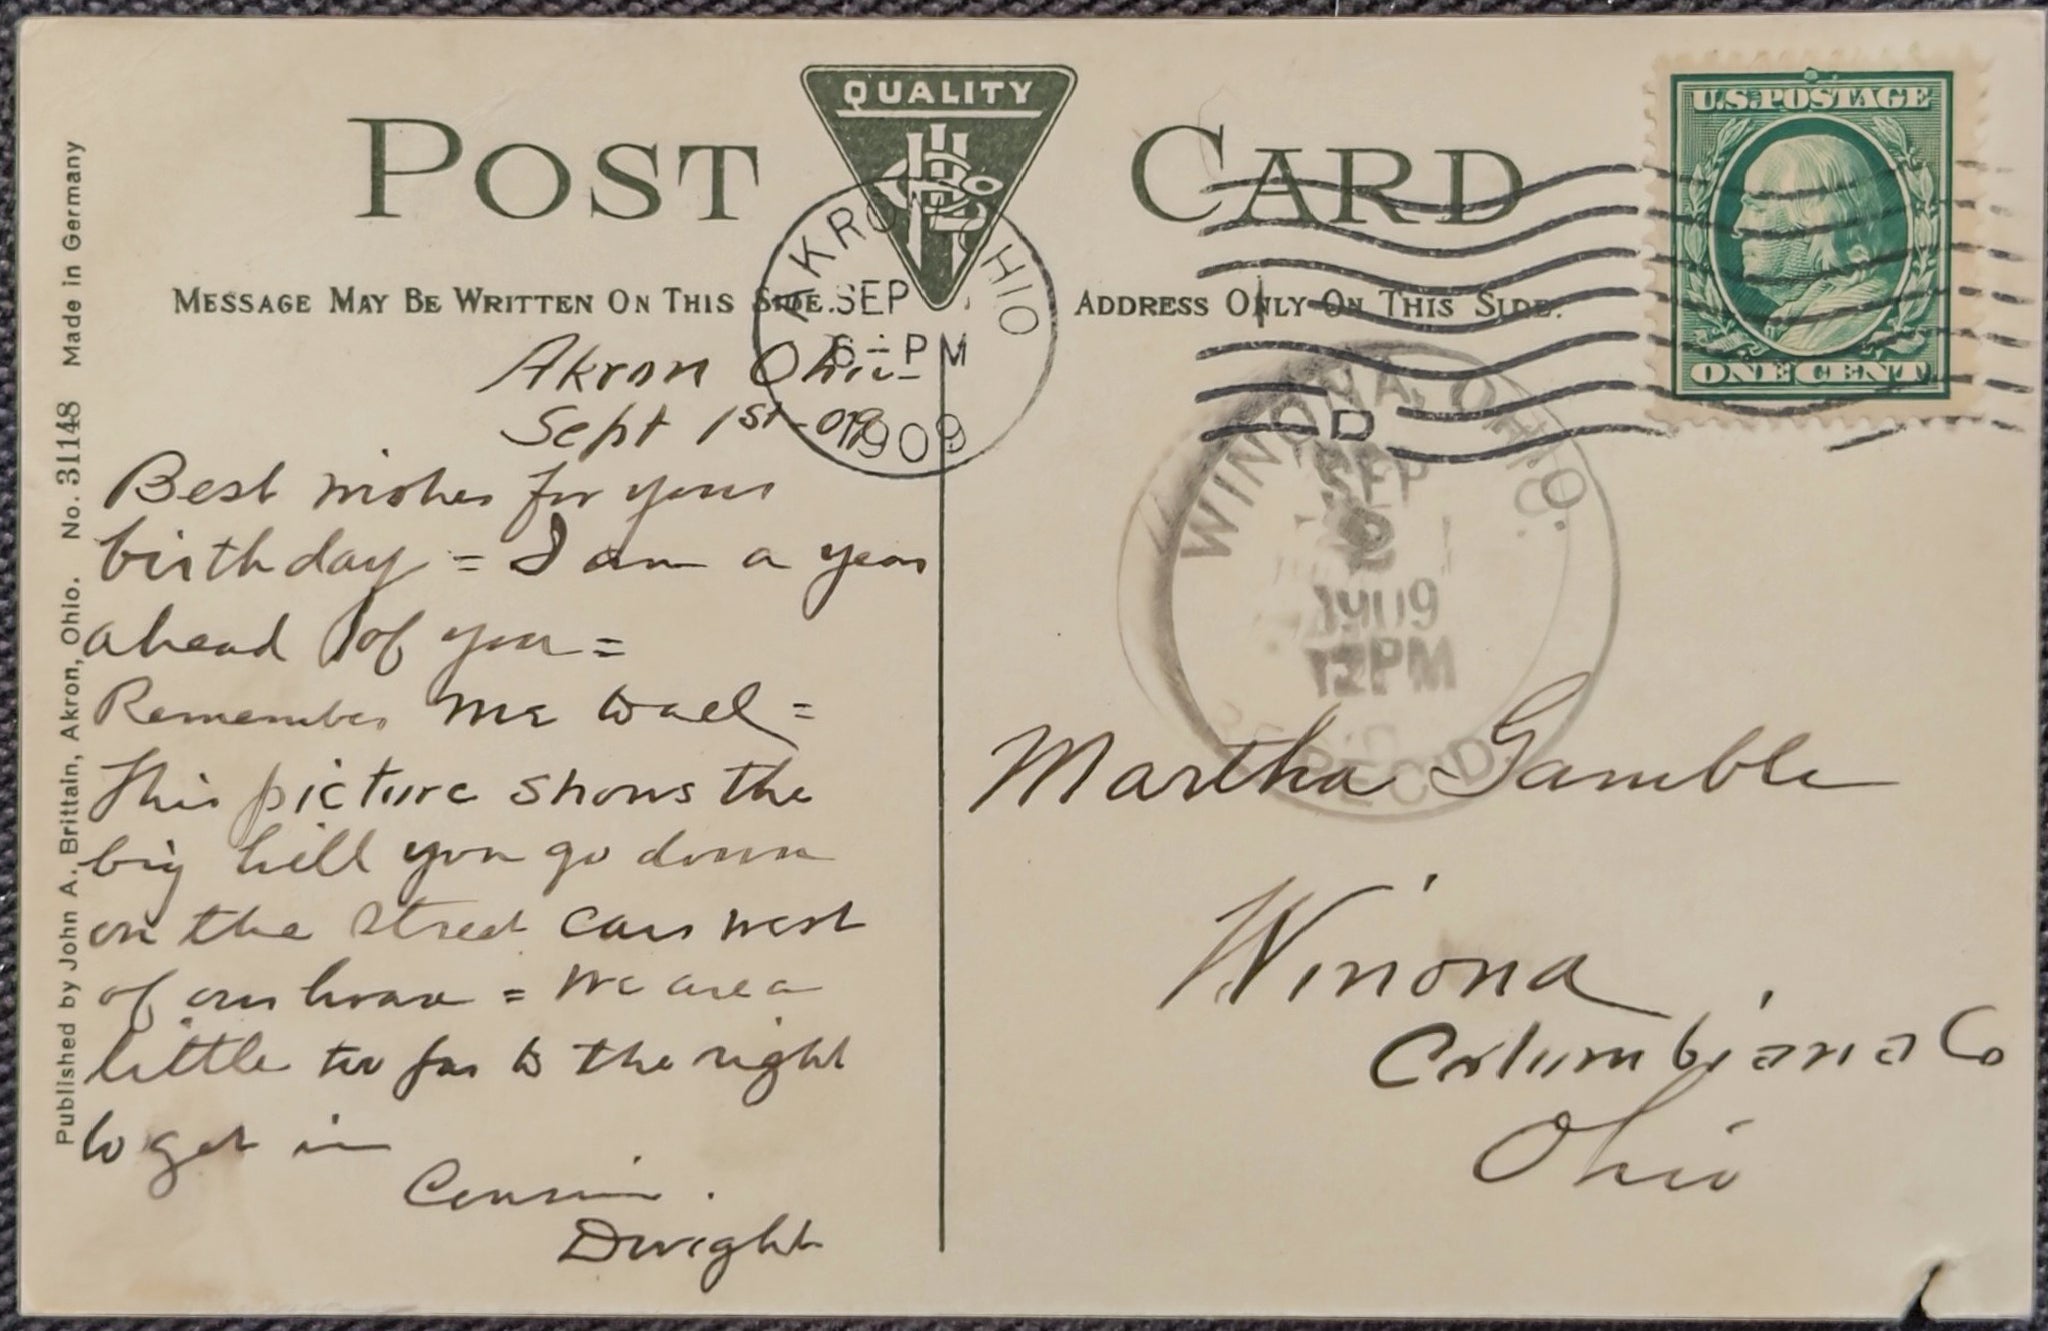 POST CARD
QUALITY
MESSAGE MAY BE WRITTEN ON THIS SIDE.
ADDRESS ONLY ON THIS SIDE.
U.S. POSTAGE
ONE CENT
AKRON OHIO
SEP
6 - PM
1909
D
WINONA, OHIO.
SEP
2
1909
12PM
REC'D.
Akron Ohio
Sept 1st - 09
Best wishes for your
birthday = I am a year
ahead of you =
Remember me to all =
This picture shows the
big hill you go down
on the street cars west
of our house = We are a
little too far to the right
to get in
Cousin.
Dwight
Martha Gamble
Winona
Columbiana Co
Ohio
Published by John A. Brittain, Akron, Ohio. No. 31148 Made in Germany